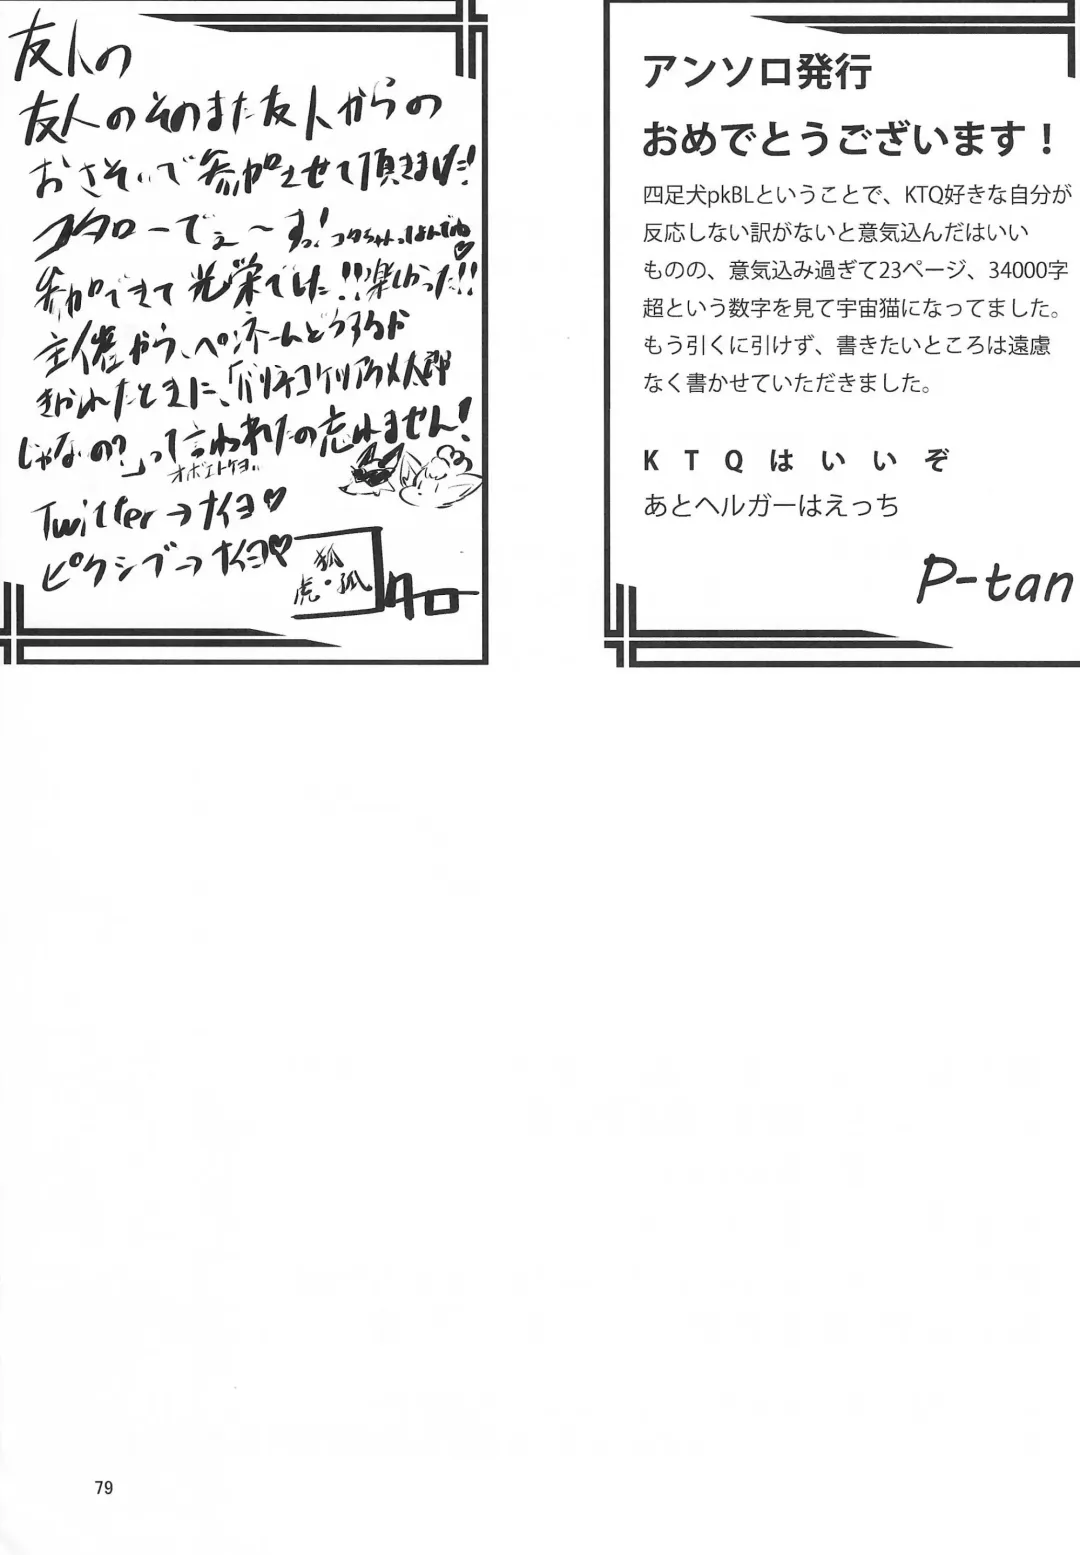 友人の
友人のそのまた友人からの
おさそいで参加させて頂きました!
コタローでぇ〜すっ! コタちゃんってよんでね♡
参加できて光栄でした!!楽しかった!!
主催から、ペンネームどうするか
きかれたときに、「バリネコケツアクメ太郎
じゃなの?」って言われたの忘れません!
オボエトケヨ..
Twitter→ナイヨ♡
ピクシブ→ナイヨ♡
狐
虎・狐
アンソロ発行
おめでとうございます！
四足犬pkBLということで、KTQ好きな自分が
反応しない訳がないと意気込んだはいい
ものの、意気込み過ぎて23ページ、34000字
超という数字を見て宇宙猫になってました。
もう引くに引けず、書きたいところは遠慮
なく書かせていただきました。
KTQはいいぞ
あとヘルガーはえっち
P-tan
79